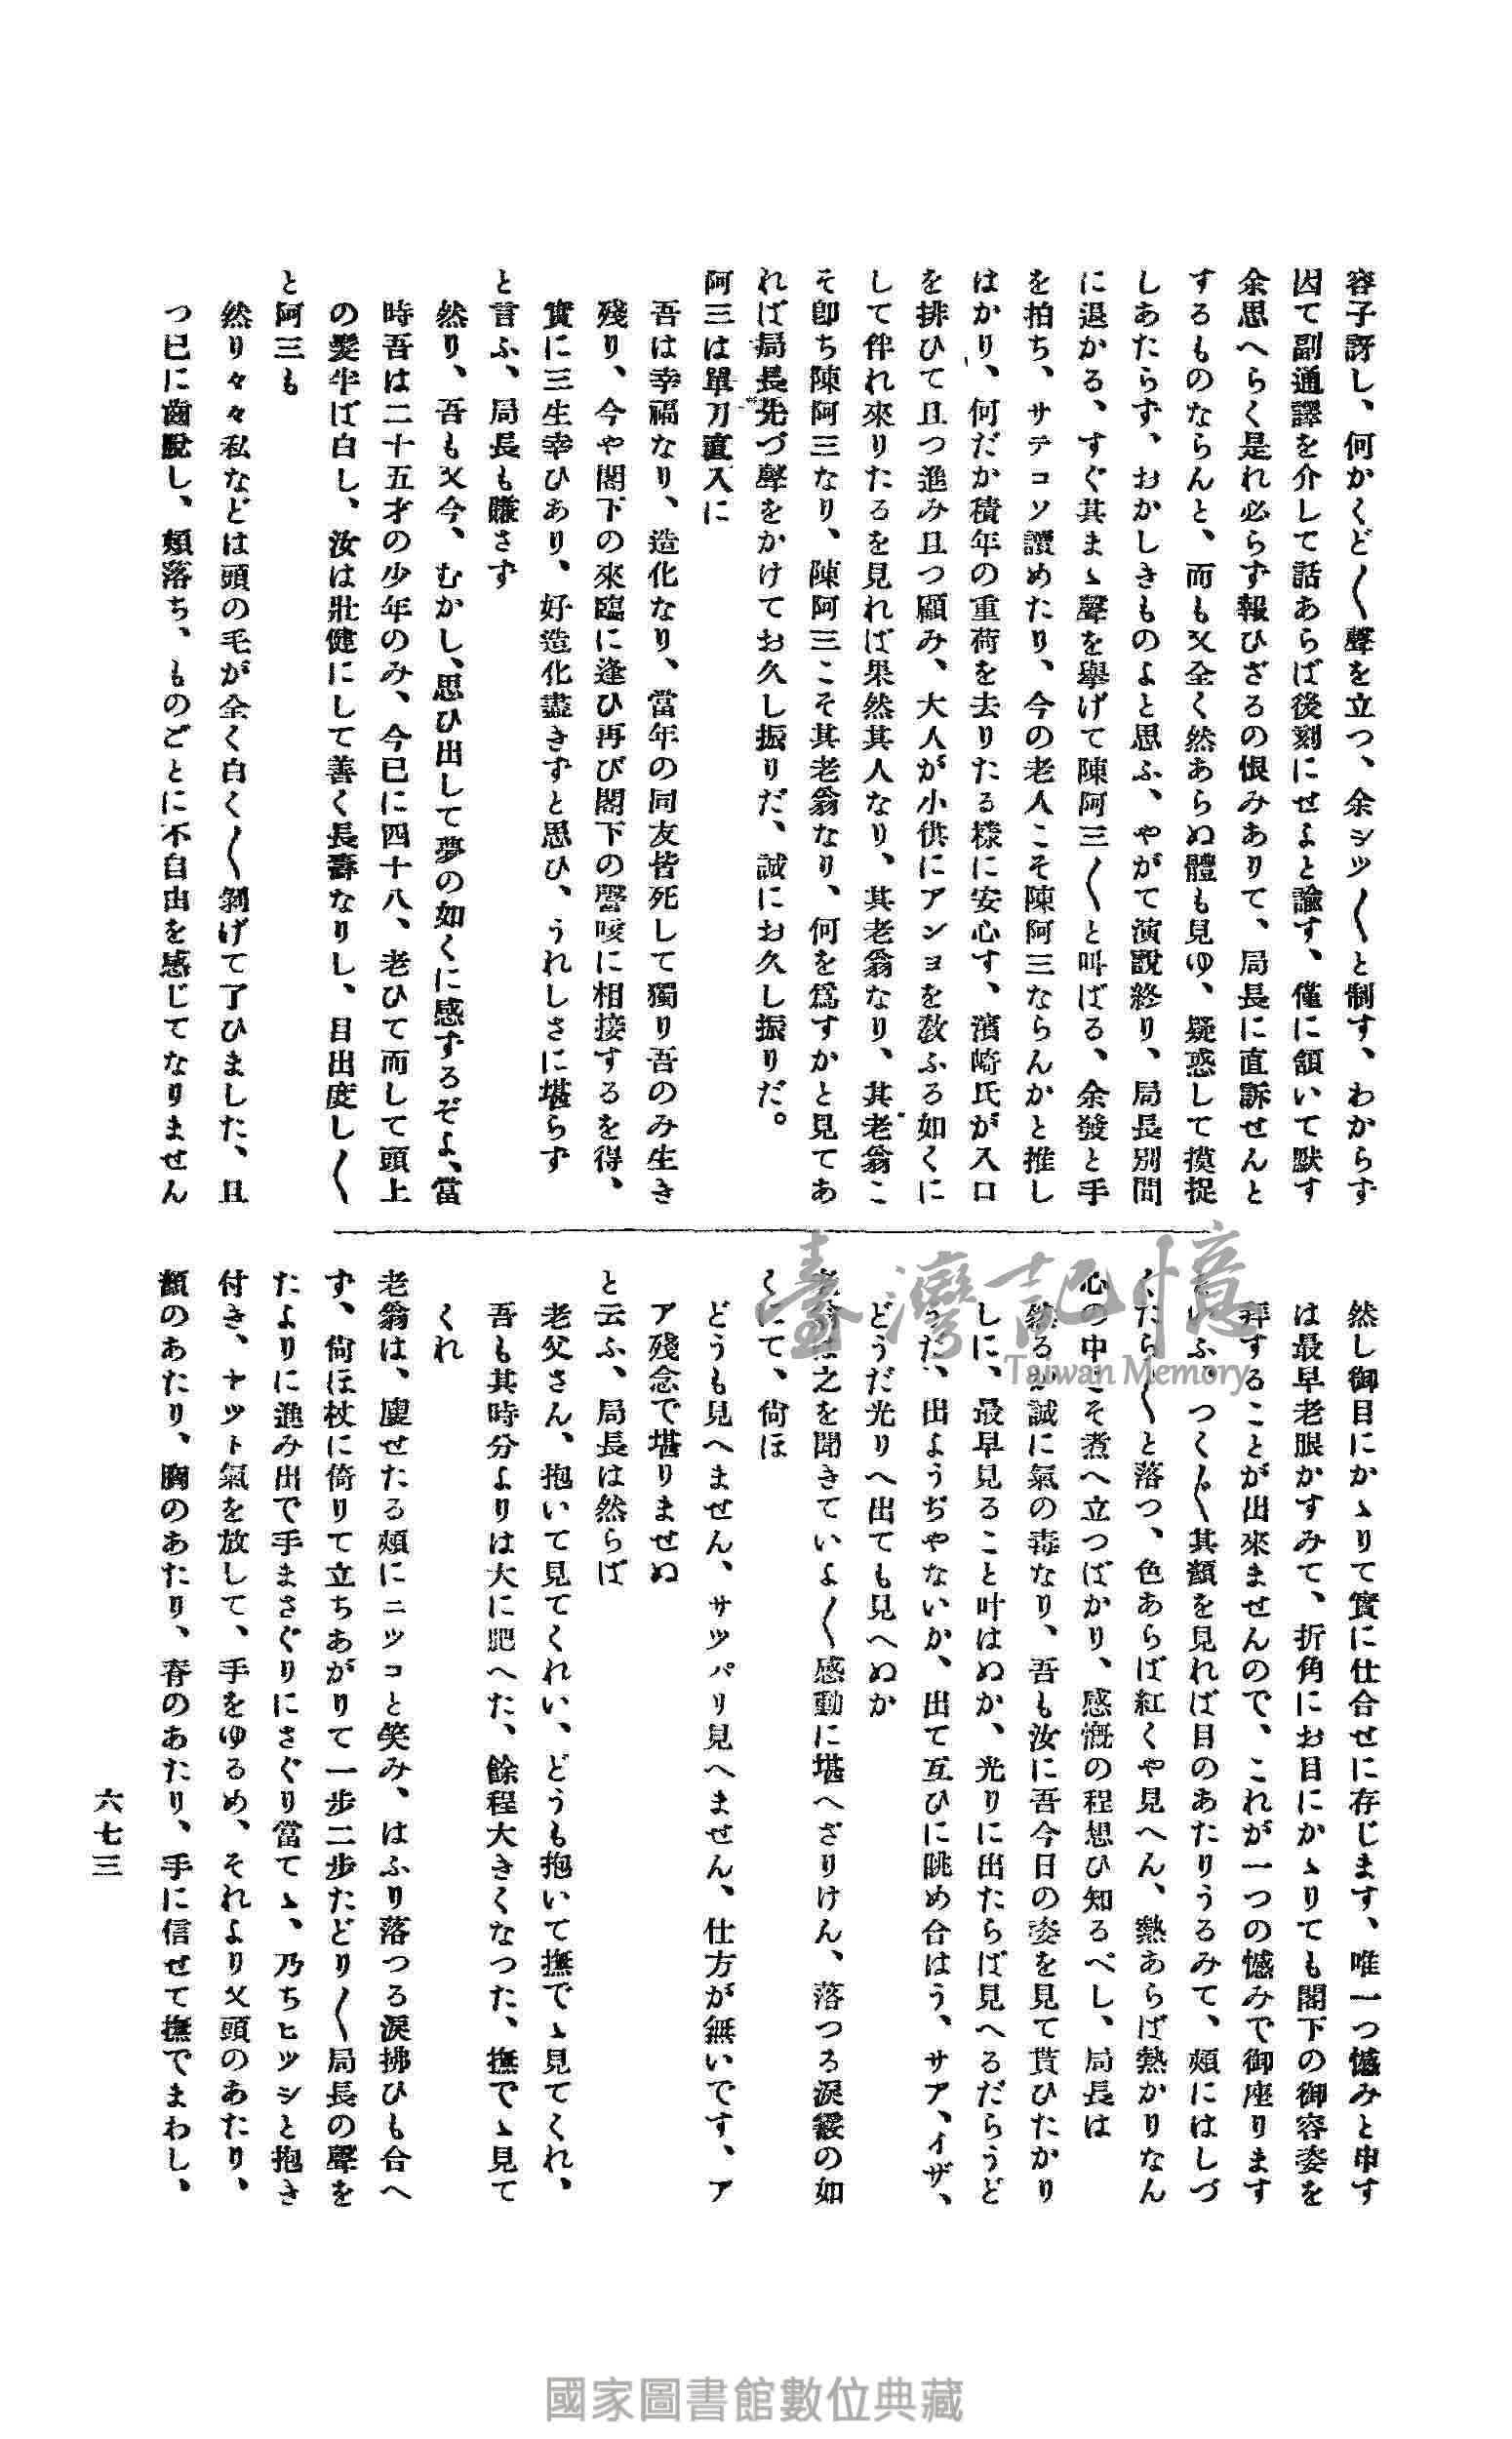 容子訝し、何かくど〱聲を立つ、余シツ〱と制す、わからず
因て副通譯を介して話あらば後刻にせよと諭す、僅に頷いて默す
余思へらく是れ必らず報ひざるの恨みありて、局長に直訴せんと
するものならんと、而も又全く然あらぬ體も見ゆ、疑惑して摸捉
しあたらず、おかしきものよと思ふ、やがて演說終り、局長別間
に退かる、すぐ其まゝ聲を擧げて陳阿三〱と叫ばる、余發と手
を拍ち、サテコソ讃めたり、今の老人こそ陳阿三ならんかと推し
はかり、何だか積年の重荷を去りたる樣に安心す、濱崎氏が入口
を排ひて且つ進み且つ顧み、大人が小供にアンヨを敎ふる如くに
して伴れ來りたるを見れば果然其人なり、其老翁なり、其老翁こ
そ卽ち陳阿三なり、陳阿三こそ其老翁なり、何を爲すかと見てあ
れば局長先づ聲をかけてお久し振りだ、誠にお久し振りだ。
阿三は單刀直入に
吾は幸福なり、造化なり、當年の同友皆死して獨り吾のみ生き
殘り、今や閣下の來臨に逢ひ再び閣下の謦咳に相接するを得、
實に三生幸ひあり、好造化盡きずと思ひ、うれしさに堪らず
と言ふ、局長も嫌さず
然り、吾も又今、むかし、思ひ出して夢の如くに感ずるぞよ、當
時吾は二十五才の少年のみ、今已に四十八、老ひて而して頭上
の髮半ば白し、汝は壯健にして善く長壽なりし、目出度し〱
と阿三も
然り々々私などは頭の毛が全く白く〱剝げて了ひました、且
つ已に齒脫し、頰落ち、ものごとに不自由を感じてなりません
然し御目にかゝりて實に仕合せに存じます、唯一つ憾みと申す
は最早老眼かすみて、折角にお目にかゝりても閣下の御容姿を
拜することが出來ませんので、これが一つの憾みで御座ります
といふ、つく〲其顏を見れば目のあたりうるみて、頰にはしづ
くたら〱と落つ、色あらば紅くや見へん、熱あらば熱かりなん
心の中こそ煮へ立つばかり、感慨の程想ひ知るべし、局長は
然るか誠に氣の毒なり、吾も汝に吾今日の姿を見て貰ひたかり
しに、最早見ること叶はぬか、光りに出たらば見へるだらうど
うだ、出ようぢやないか、出て互ひに眺め合はう、サア、イザ、
どうだ光りへ出ても見へぬか
老翁は之を聞きていよ〱感動に堪へざりけん、落つる淚霰の如
くにて、尙ほ
どうも見へません、サツパリ見へません、仕方が無いです、ア
ア殘念で堪りませぬ
と云ふ、局長は然らば
老父さん、抱いて見てくれい、どうも抱いて撫でゝ見てくれ、
吾も其時分よりは大に肥へた、餘程大きくなつた、撫でゝ見て
くれ
老翁は、瘦せたる頰にニツコと笑み、はふり落つる淚拂ひも合へ
ず、尙ほ杖に倚りて立ちあがりて一步二步たどり〱局長の聲を
たよりに進み出で手まさぐりにさぐり當てゝ、乃ちヒツシと抱き
付き、ヤツト氣を放して、手をゆるめ、それより又頭のあたり、
顏のあたり、胸のあたり、脊のあたり、手に信せて撫でまわし、
六七三
臺灣記憶
Taiwan Memory
國家圖書館數位典藏